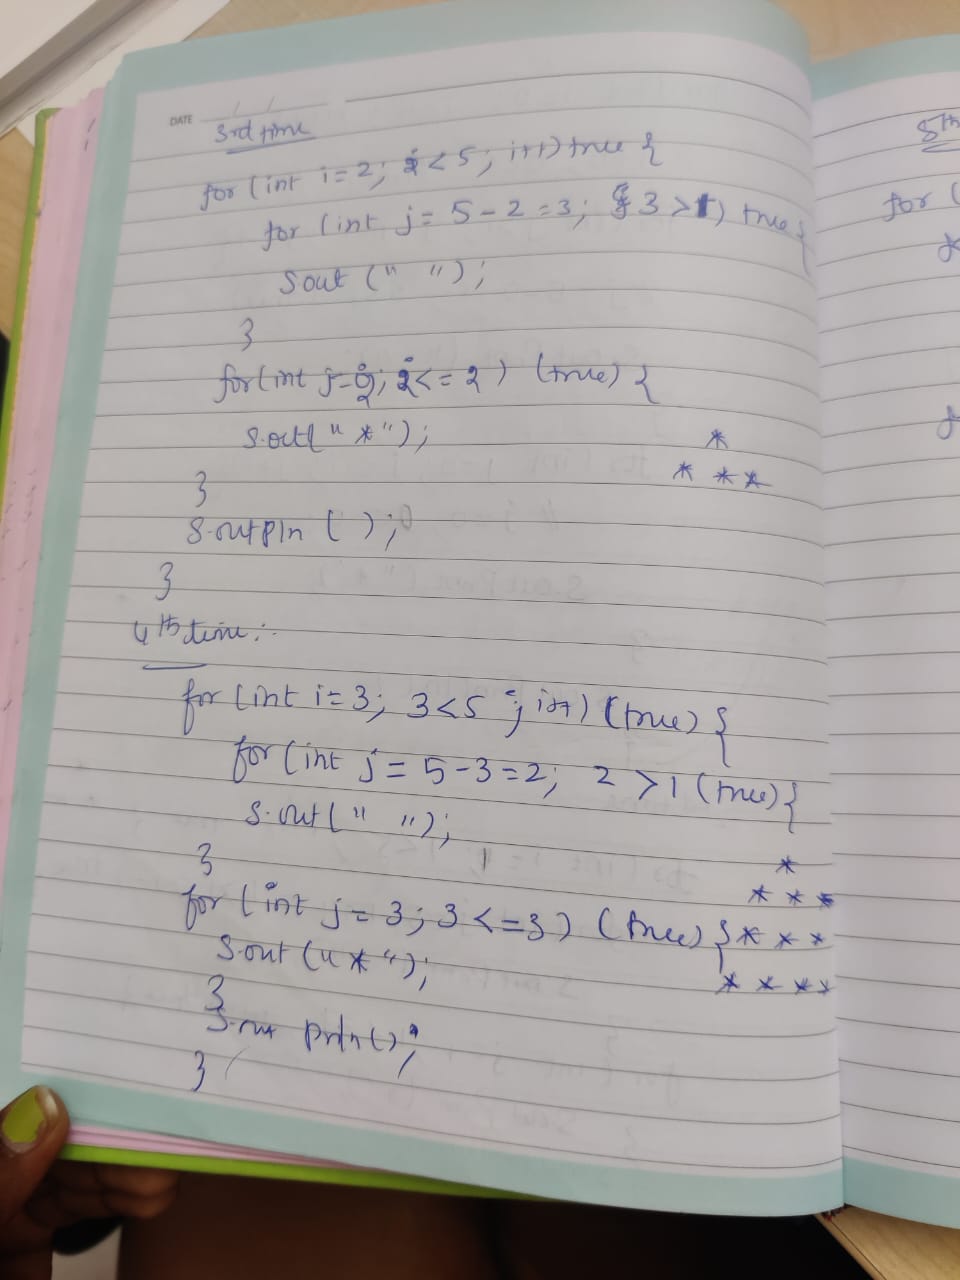 DATE / /
3rd time
for (int i=2; 2<5; i++) true {
for (int j= 5-2=3; 3>1) true {
Sout (" ");
}
for(int j=2; 2<=2) (true) {
S.out(" * ");
*
* * *
}
S.outpln ( );
}
4th time:-
for (int i=3; 3<5 ; i++) (true) {
for (int j= 5-3=2; 2 >1 (true) {
S.out(" ");
}
*
* * *
for (int j= 3; 3<=3) (true) { * * *
S.out (" * ");
* * * *
}
S.out println();
}
5th
for (